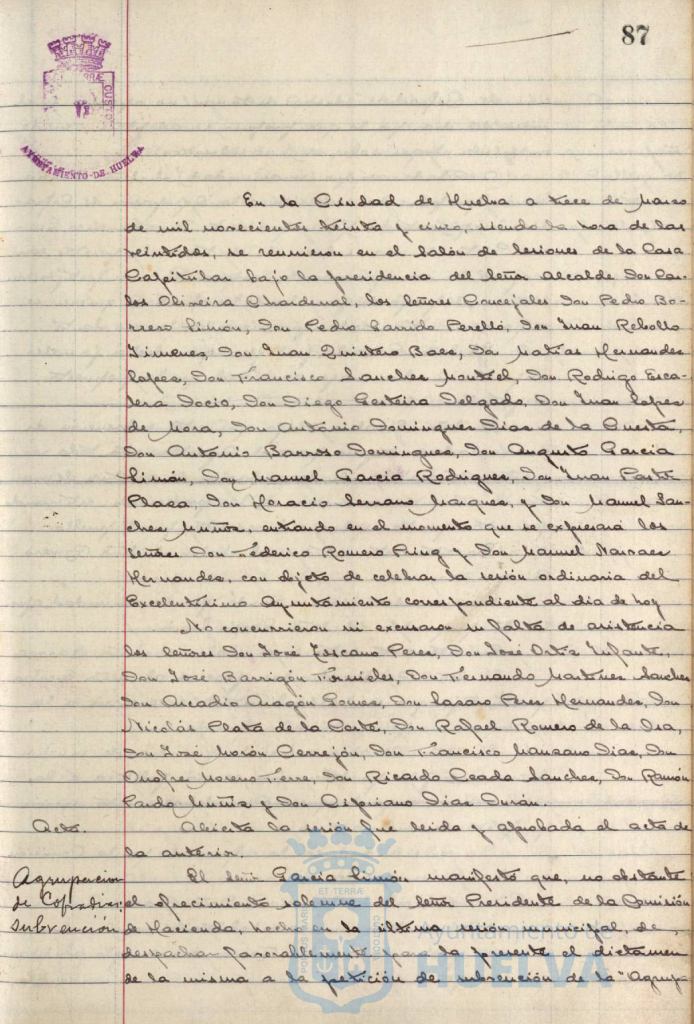 87
CUSTO
AYUNTAMIENTO-DE-HUELVA
En la Ciudad de Huelva a trece de Marzo
de mil novecientos treinta y cinco, siendo la hora de las
veintidos, se reunieron en el Salón de Sesiones de la Casa
Capitular bajo la presidencia del Señor Alcalde Don Car-
los Oliveira Chardenal, los Señores Concejales Don Pedro Bo-
rrero Limón, Don Pedro Garrido Perelló, Don Juan Rebollo
Jimenez, Don Juan Quintero Baez, Don Matias Hernandez
Lopez, Don Francisco Sanchez Montiel, Don Rodrigo Esca-
lera Socio, Don Diego Gesteira Delgado, Don Juan Lopez
de Mora, Don António Dominguez Diaz de la Cuesta,
Don António Barroso Dominguez, Don Augusto Garcia
Limón, Don Manuel Garcia Rodriguez, Don Juan Pastor
Plaza, Don Horacio Serrano Marquez, y Don Manuel San-
chez Muñoz, entrando en el momento que se expresará los
Señores Don Federico Romero Pring y Don Manuel Narvaez
Hernandez, con objeto de celebrar la sesión ordinaria del
Excelentísimo Ayuntamiento correspondiente al dia de hoy
No concurrieron ni excusaron su falta de asistencia
los señores Don José Toscano Perez, Don José Ortiz Infante,
Don José Barrigón Fornieles, Don Fernando Martinez Sanchez
Don Arcadio Aragón Gomez, Don Lazaro Perez Hernandez, Don
Nicolás Plata de la Corte, Don Rafael Romero de la Osa,
Don José Morón Cerrejón, Don Francisco Manzano Diaz, Don
Onofre Moreno Ferre, Don Ricardo Ceada Sanchez, Don Ramón
Pardo Muñiz y Don Cipriano Diaz Durán.
Acta. Abierta la sesión fue leida y aprobada el acta de
la anterior.
Agrupacion
de Cofradias:
subvención
El señor Garcia Limón manifestó que, no obstante
el ofrecimiento solemne del Señor Presidente de la Comisión
de Hacienda, hecho en la última sesión municipal, de
despachar favorablemente para la presente el dictamen
de la misma a la petición de subvención de la "Agrupa-
ET TERRÆ
Ayuntamiento de
HUELVA